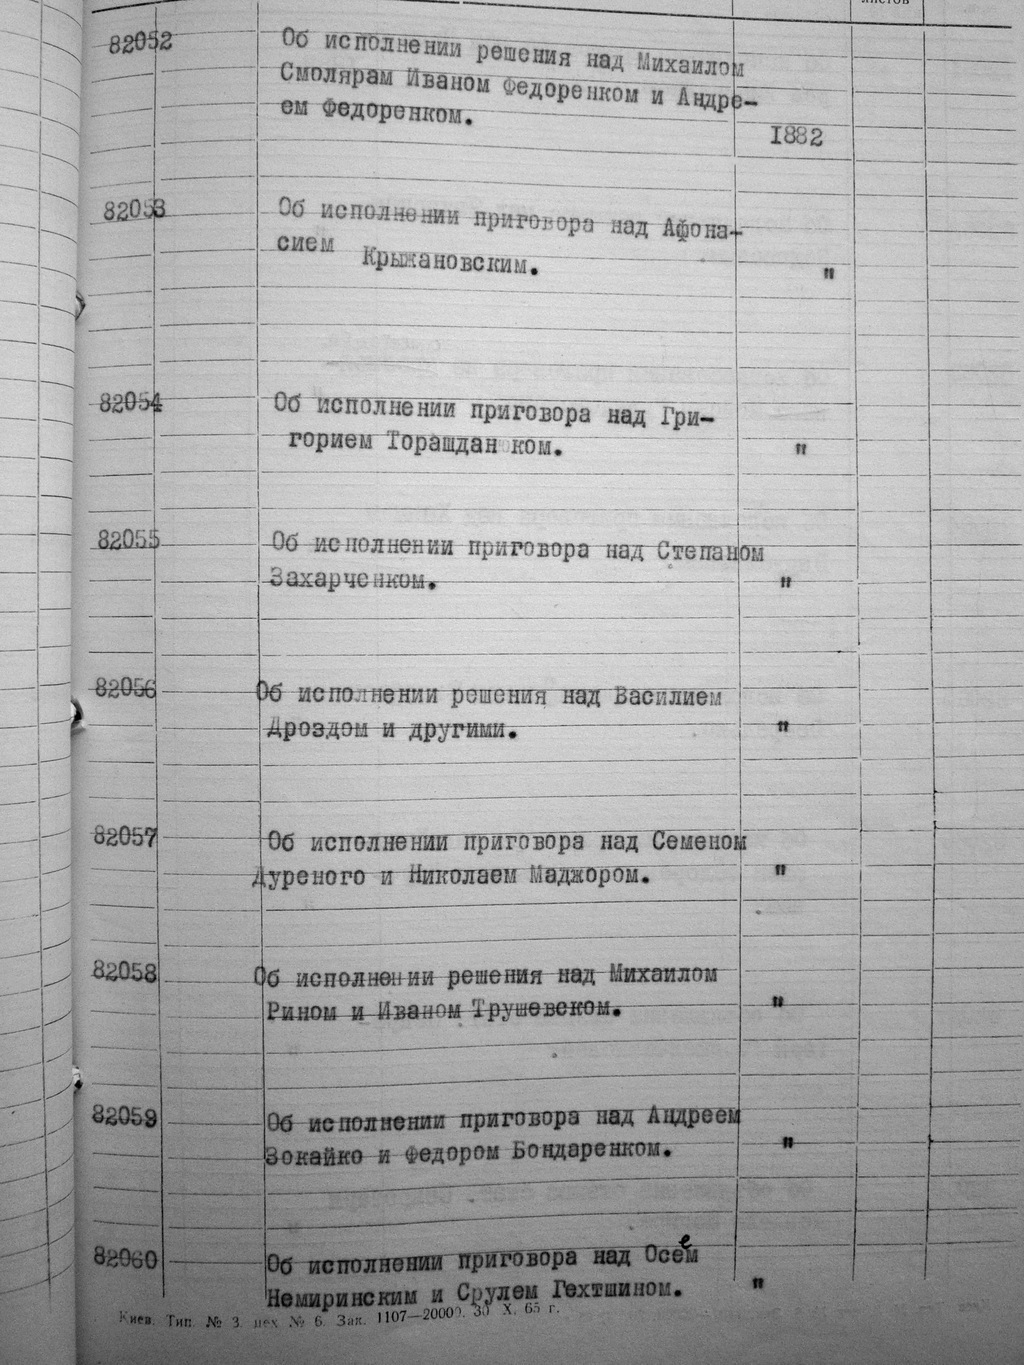 листов
82052 Об исполнении решения над Михаилом
Смолярам Иваном Федоренком и Андре-
ем Федоренком.
1882
82053 Об исполнении приговора над Афона-
сием Крыжановским. "
82054 Об исполнении приговора над Гри-
горием Торашдан ком. "
82055 Об исполнении приговора над Степаном
Захарченком. "
82056 Об исполнении решения над Василием
Дроздом и другими. "
82057 Об исполнении приговора над Семеном
Дуреного и Николаем Маджором. "
82058 Об исполнении решения над Михаилом
Рином и Иваном Трушевском. "
82059 Об исполнении приговора над Андреем
Зокайко и Федором Бондаренком. "
82060 Об исполнении приговора над Осеем
Немиринским и Срулем Гехтшином. "
Киев. Тип. № 3. цех № 6. Зак. 1107—20000. 30 X. 65 г.